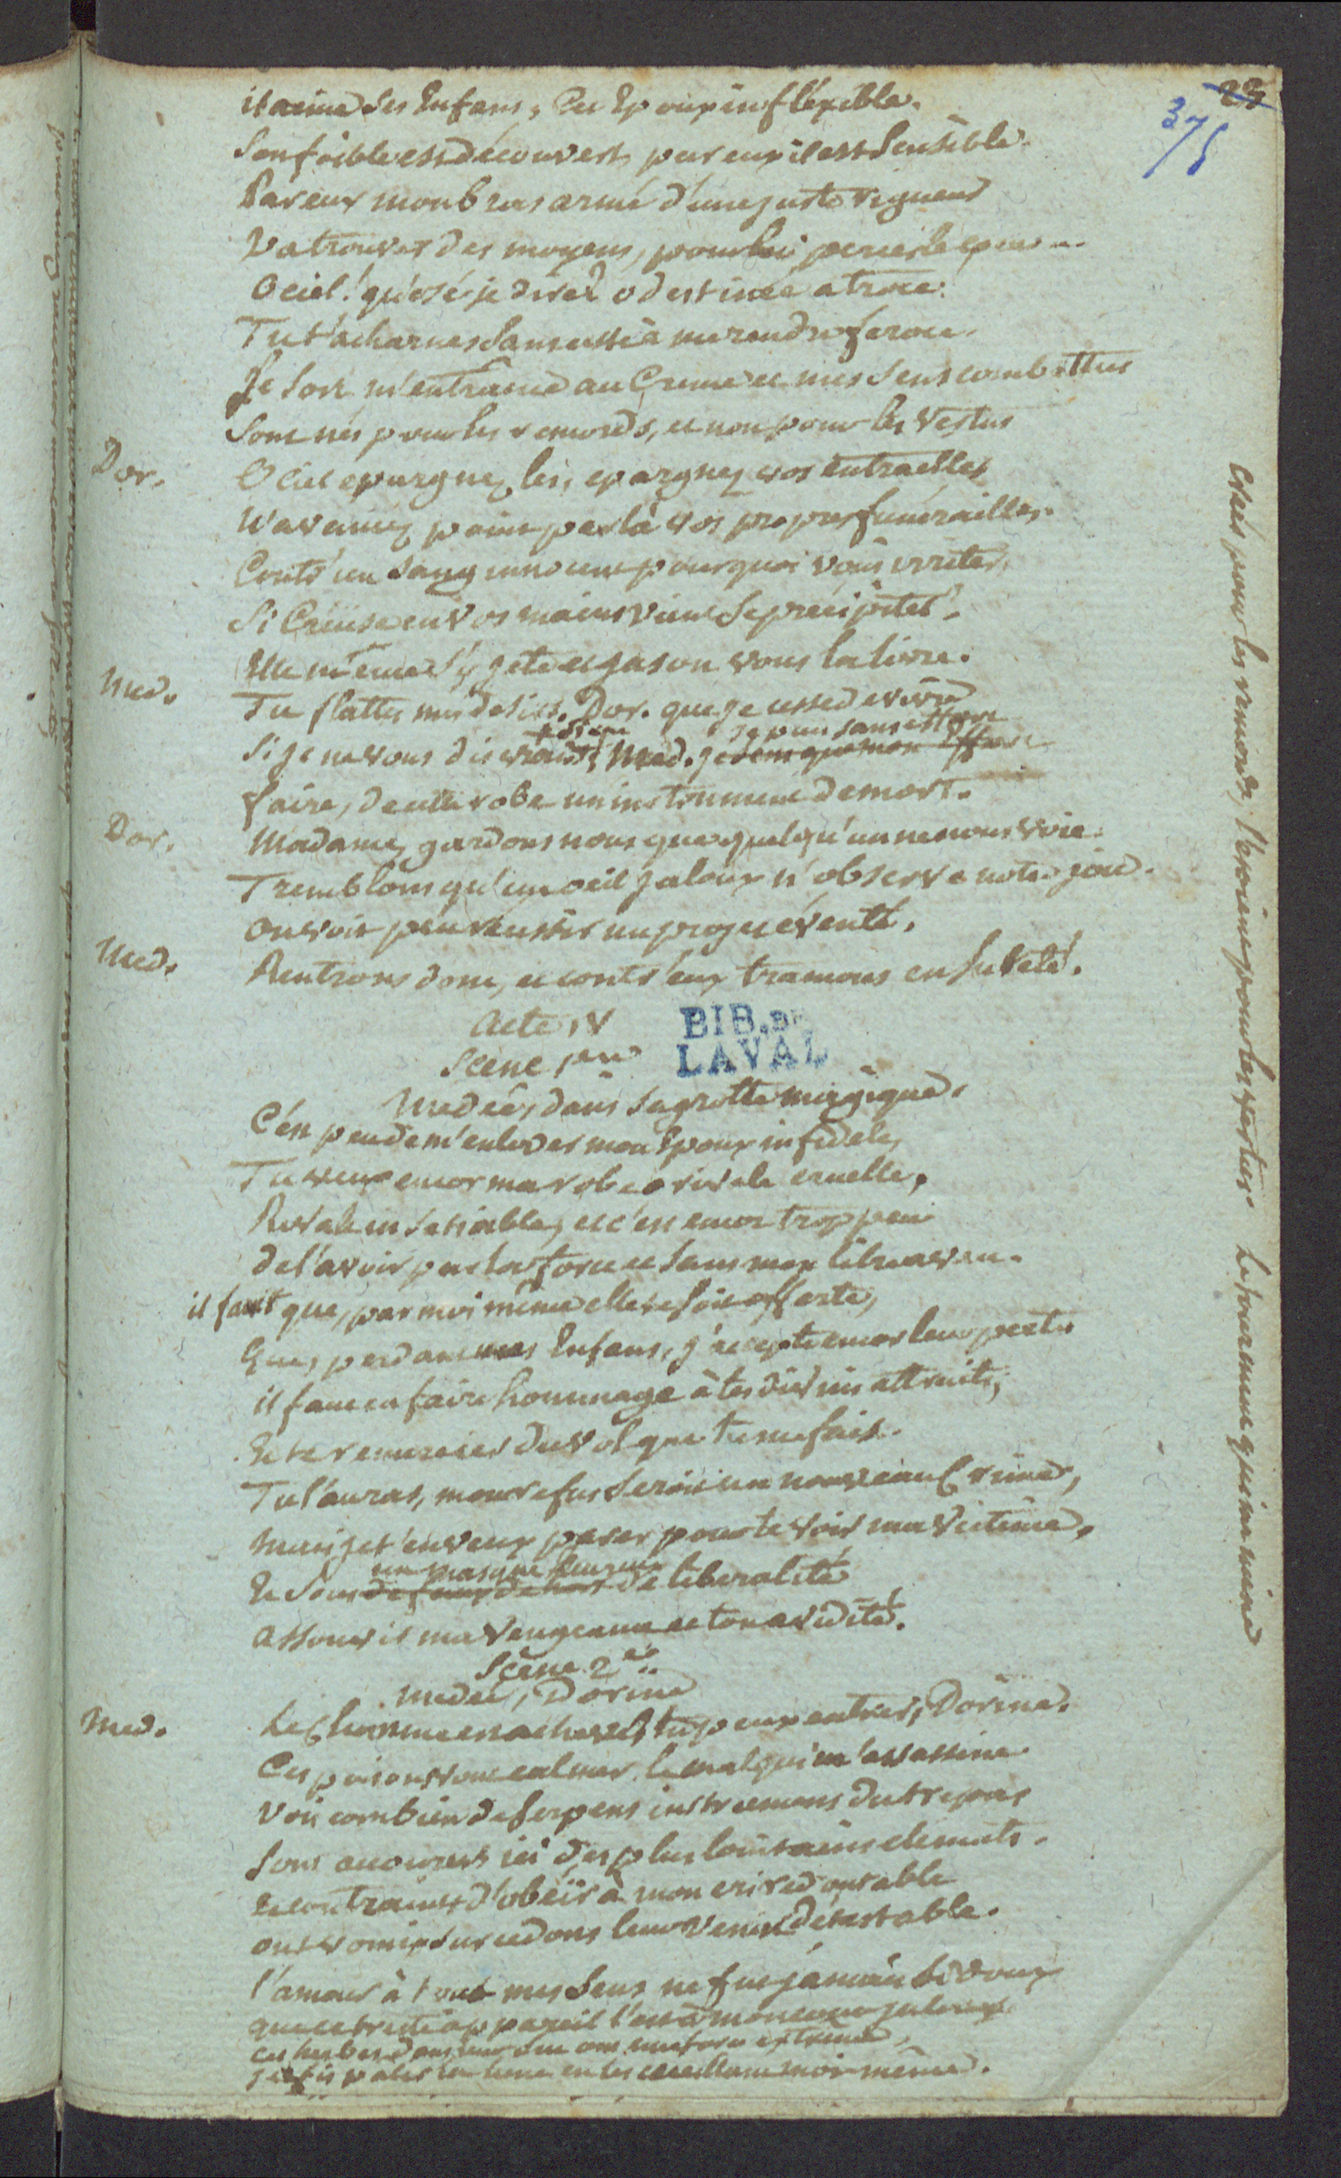 23
375
il aime ses Enfans, Cet Epoux infléxible.
Son foible est découvert, par eux il est sensible.
Par eux mon bras armé d'une juste rigueur
Va trouver des moyens, pour lui percer le cœur.
O ciel! qu'osé-je dire? o destinée atroce.
Tu t'acharnes sans cesse à me rendre feroce.
Le Sort m'entraine au Crime et mes sens combattus
Sont nés pour les remords, et non pour les Vertus
Dor. O Ciel epargnez les, epargnez vos entrailles
N'avancez point par là vos propres funérailles.
Contr'un sang innocent pourquoi vous irriter,
Si Creüse en vos mains vient se precipiter,
Elle même s'y jete et Jason vous la livre.
Med. Tu flattes mes desirs. Dor. que je cesse de vivre
je puis sans effort
Si je ne vous dis vrai. Med.
faire, de cette robe un instrument de mort.
Dor. Madame, gardons nous que quelqu'un ne nous voie.
Tremblons qu'un oeil jaloux n'observe notre joie.
On voit peu reussir un projet éventé.
Med. Rentrons donc, et contr'eux tramons en sureté.
Acte IV
BIB. DE
LAVAL
Scene 1ere
Medée, dans sa grotte magique.
C'est peu de m'enlever mon Epoux infidele,
Tu veux encor ma robe o rivale cruelle,
Rivale insatiable, et c'est encor trop peu
de l'avoir par la force et sans mon libre aveu.
il faut que, par moi même elle te soit offerte,
Que, perdant mes Enfans, j'accepte encor leur perte
il faut en faire hommage à tes divins attraits,
Et te remercier du vol que tu me fais.
Tu l'auras, mon refus seroit un nouveau Crime,
Mais je t'en veux parer pour te voir ma Victime,
un masque
Et sous de liberalité
Assouvir ma vengeance et ton avidité.
Scène 2e
Medée, Dorine
Med. Le Charme est achevé, tu peux entrer, Dorine.
Ces poisons vont calmer le mal qui m'assassine
Vois combien de serpens instrumens du trepas
Sont accourus ici des plus lointains climats.
Et contraints d'obéir à mon cri redoutable
ont vomi sur ce don leur venin détestable.
l'amour à tous mes sens ne fut jamais si doux
que ce triste appareil l'est à mon cœur jaloux
ces herbes dont une force extreme,
je fis palir la lune en les cueillant moi-même.
Créés pour les remords, l'étoient pour les vertus Le sort me